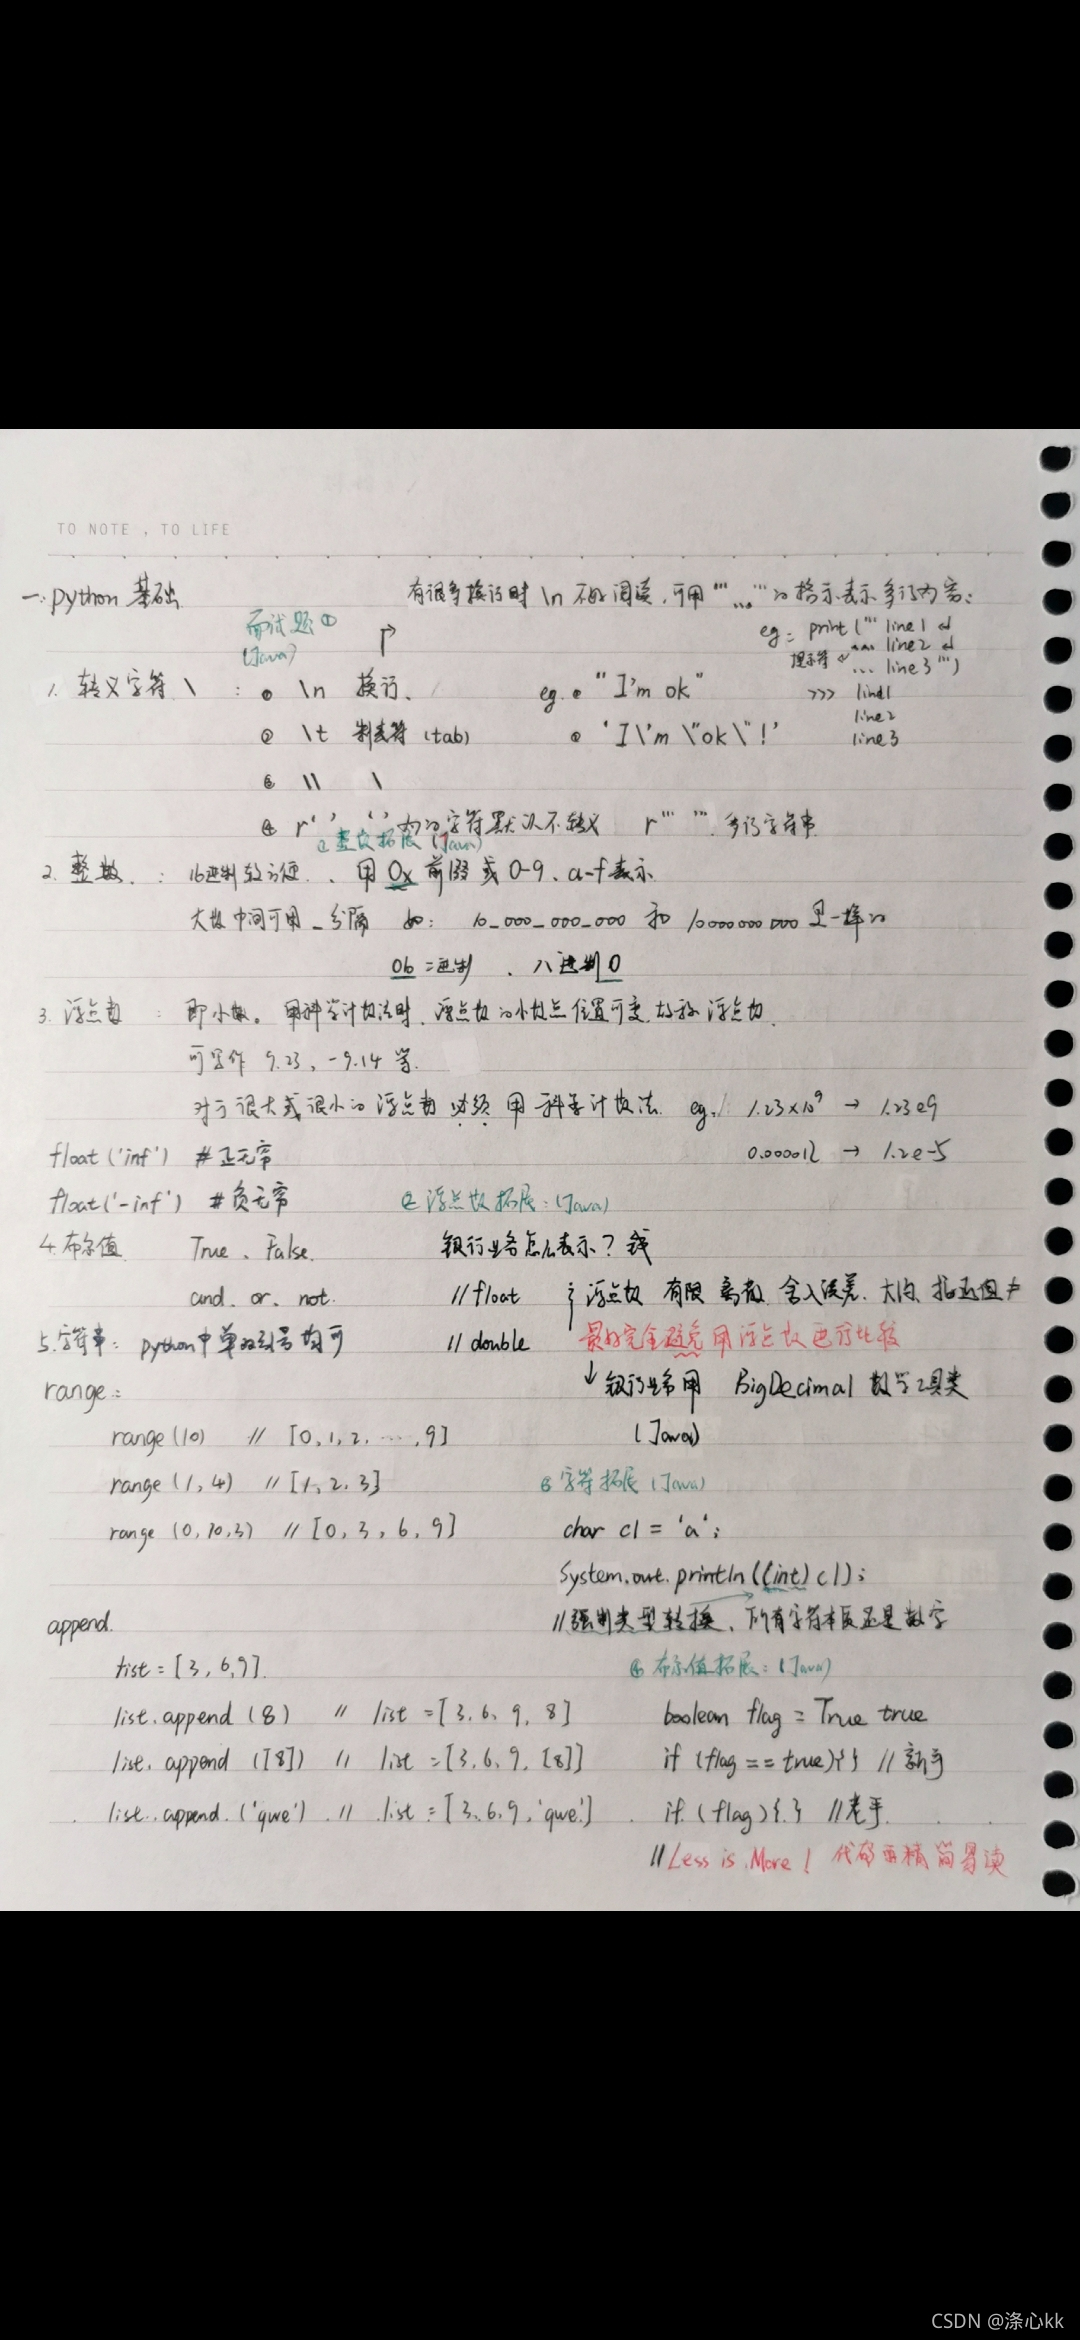 TO NOTE , TO LIFE
一. python 基础
有很多换行时 \n 不好阅读，可用 '''...''' 的格式表示多行内容：
面试题①
(Java)
eg: print (''' line1 ↵
... line2 ↵
提示符 ... line3 ''')
1. 转义字符 \ : ① \n 换行、 eg. ① "I'm ok" >>> line1
line2
② \t 制表符 (tab) ② 'I\'m \"ok\"!' line3
③ \\ \
④ r' ' ' '内的字符默认不转义 r''' '''. 多行字符串
② 整数拓展 (Java)
2. 整数 : 16进制较方便、用 0x 前缀或 0-9、a-f表示
大数中间可用 _ 分隔 如: 10_000_000_000 和 10000000000 是一样的
0b 二进制 、八进制 0
3. 浮点数 : 即小数。用科学计数法时，浮点数的小数点位置可变，故称浮点数
可写作 9.23、-9.14 等.
对于很大或很小的浮点数必须用科学计数法. eg. 1.23x10⁹ → 1.23e9
float ('inf') #正无穷 0.000012 → 1.2e-5
float('-inf') #负无穷 ② 浮点数拓展: (Java)
4. 布尔值 True、False. 银行业务怎么表示? 钱
and. or. not. // float 浮点数 有限 离散 舍入误差. 大约. 接近但≠
5. 字符串: python中单双引号均可 // double 最好完全避免用浮点数进行比较
range: ↓ 银行业务用 BigDecimal 数学工具类
range (10) // [0,1,2,...,9] (Java)
range (1,4) // [1,2,3] ③ 字符拓展 (Java)
range (0,10,3) // [0,3,6,9] char c1 = 'a';
System.out.println((int)c1);
append. // 强制类型转换、所有字符本质还是数字
list = [3,6,9]. ④ 布尔值拓展: (Java)
list.append (8) // list = [3,6,9,8] boolean flag = True true
list. append ([8]) // list = [3,6,9,[8]] if (flag == true){} // 新手
list. append. ('qwe') // list = [3,6,9,'qwe'] if (flag){ } // 老手.
// Less is More ! 代码要精简易读
CSDN @涤心kk